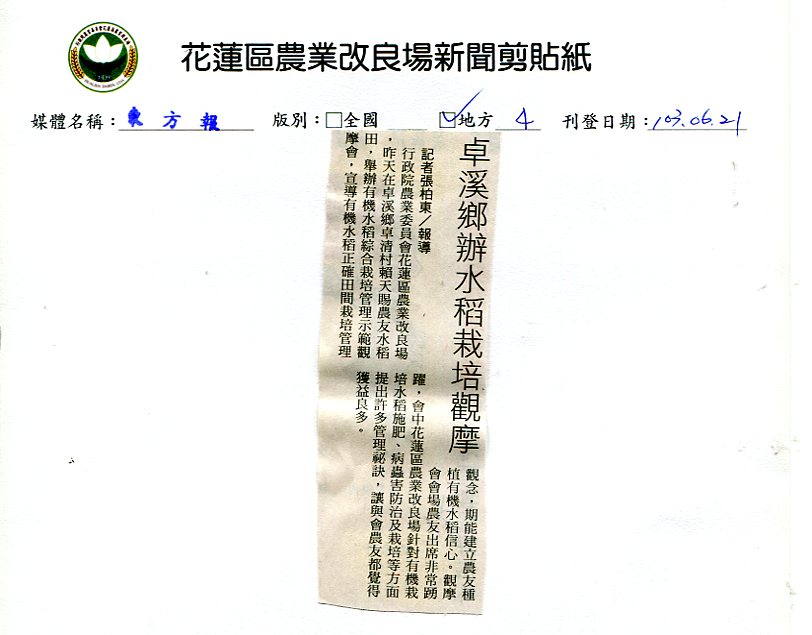 花蓮區農業改良場新聞剪貼紙
媒體名稱：東方報 版別：□全國 ☑地方 4 刊登日期：103.06.21
卓溪鄉辦水稻栽培觀摩
記者張柏東／報導
行政院農業委員會花蓮區農業改良場
，昨天在卓溪鄉卓清村賴天賜農友水稻
田，舉辦有機水稻綜合栽培管理示範觀
摩會，宣導有機水稻正確田間栽培管理
觀念，期能建立農友種
植有機水稻信心。觀摩
會會場農友出席非常踴
躍，會中花蓮區農業改良場針對有機栽
培水稻施肥、病蟲害防治及栽培等方面
提出許多管理祕訣，讓與會農友都覺得
獲益良多。